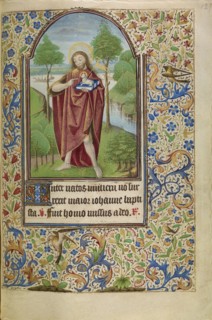 Inter natos mulierum nō sur
rexit maior iohanne bapti
sta. V. Fuit homo missus a deo. R.